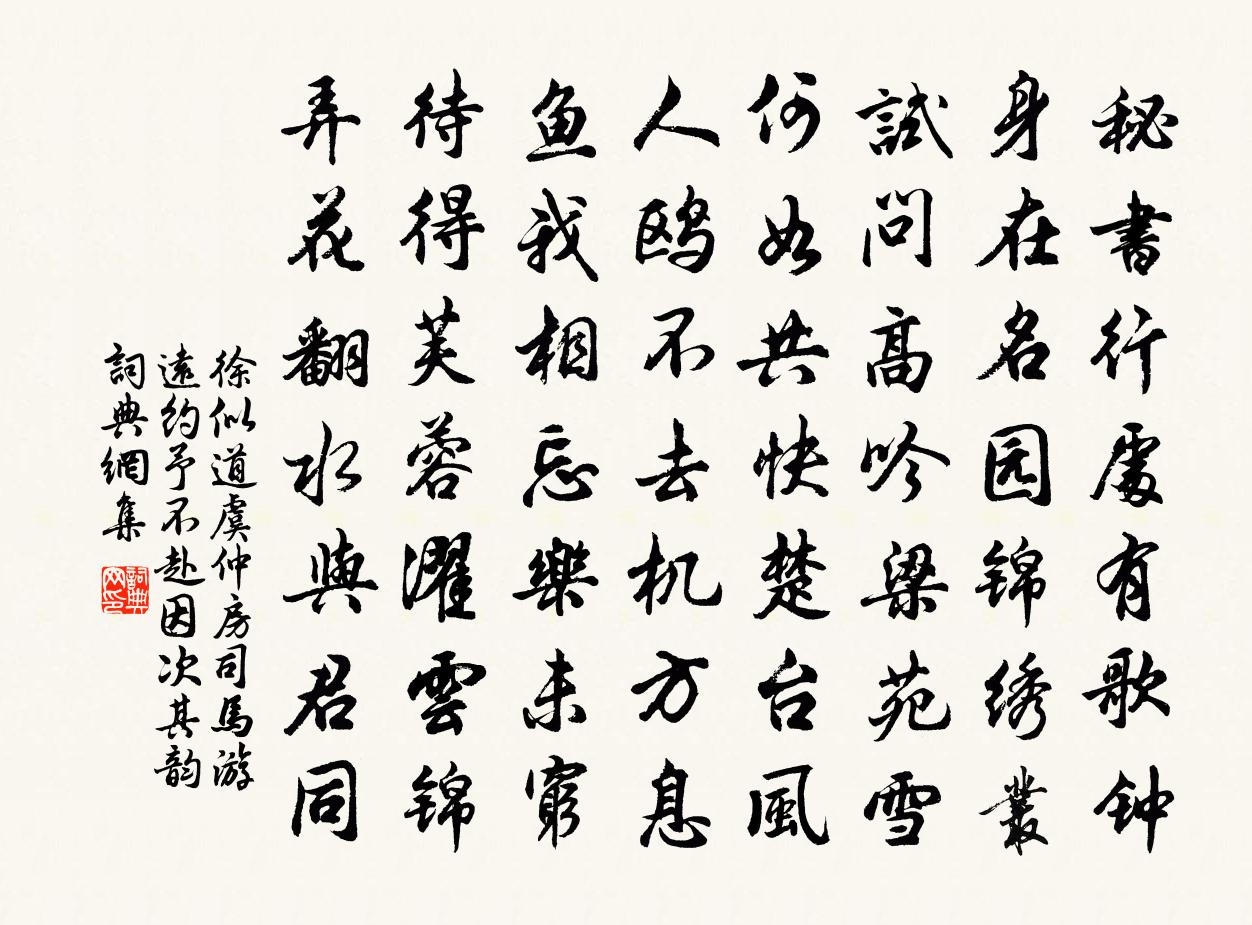 秘書行處有歌钟
身在名园锦绣叢
試問高吟梁苑雪
何如共快楚台風
人鸥不去机方息
鱼我相忘樂未窮
待得芙蓉濯雲锦
弄花翻水與君同
徐似道虞仲房司馬游
遠約予不赴因次其韵
詞典網集
詞典
网印